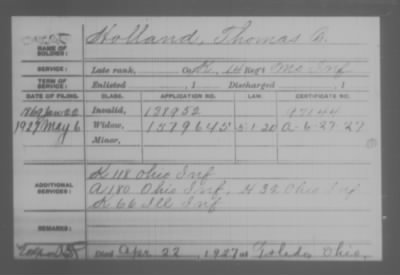 NAME OF SOLDIER: Holland, Thomas B.
SERVICE: Late rank, Co. K, 14 Reg't Mo Inf
TERM OF SERVICE: Enlisted , 1 Discharged , 1
DATE OF FILING. CLASS. APPLICATION NO. LAW. CERTIFICATE NO.
1869 Jan 22 Invalid, 138952 97144
1927 May 6 Widow, 1579645 5-1-20 A-6-27-27
Minor,
ADDITIONAL SERVICES: K 118 Ohio Inf
A 180 Ohio Inf, H 32 Ohio Inf
K 66 Ill Inf
REMARKS:
Died Apr. 22, 1927 at Toledo Ohio,